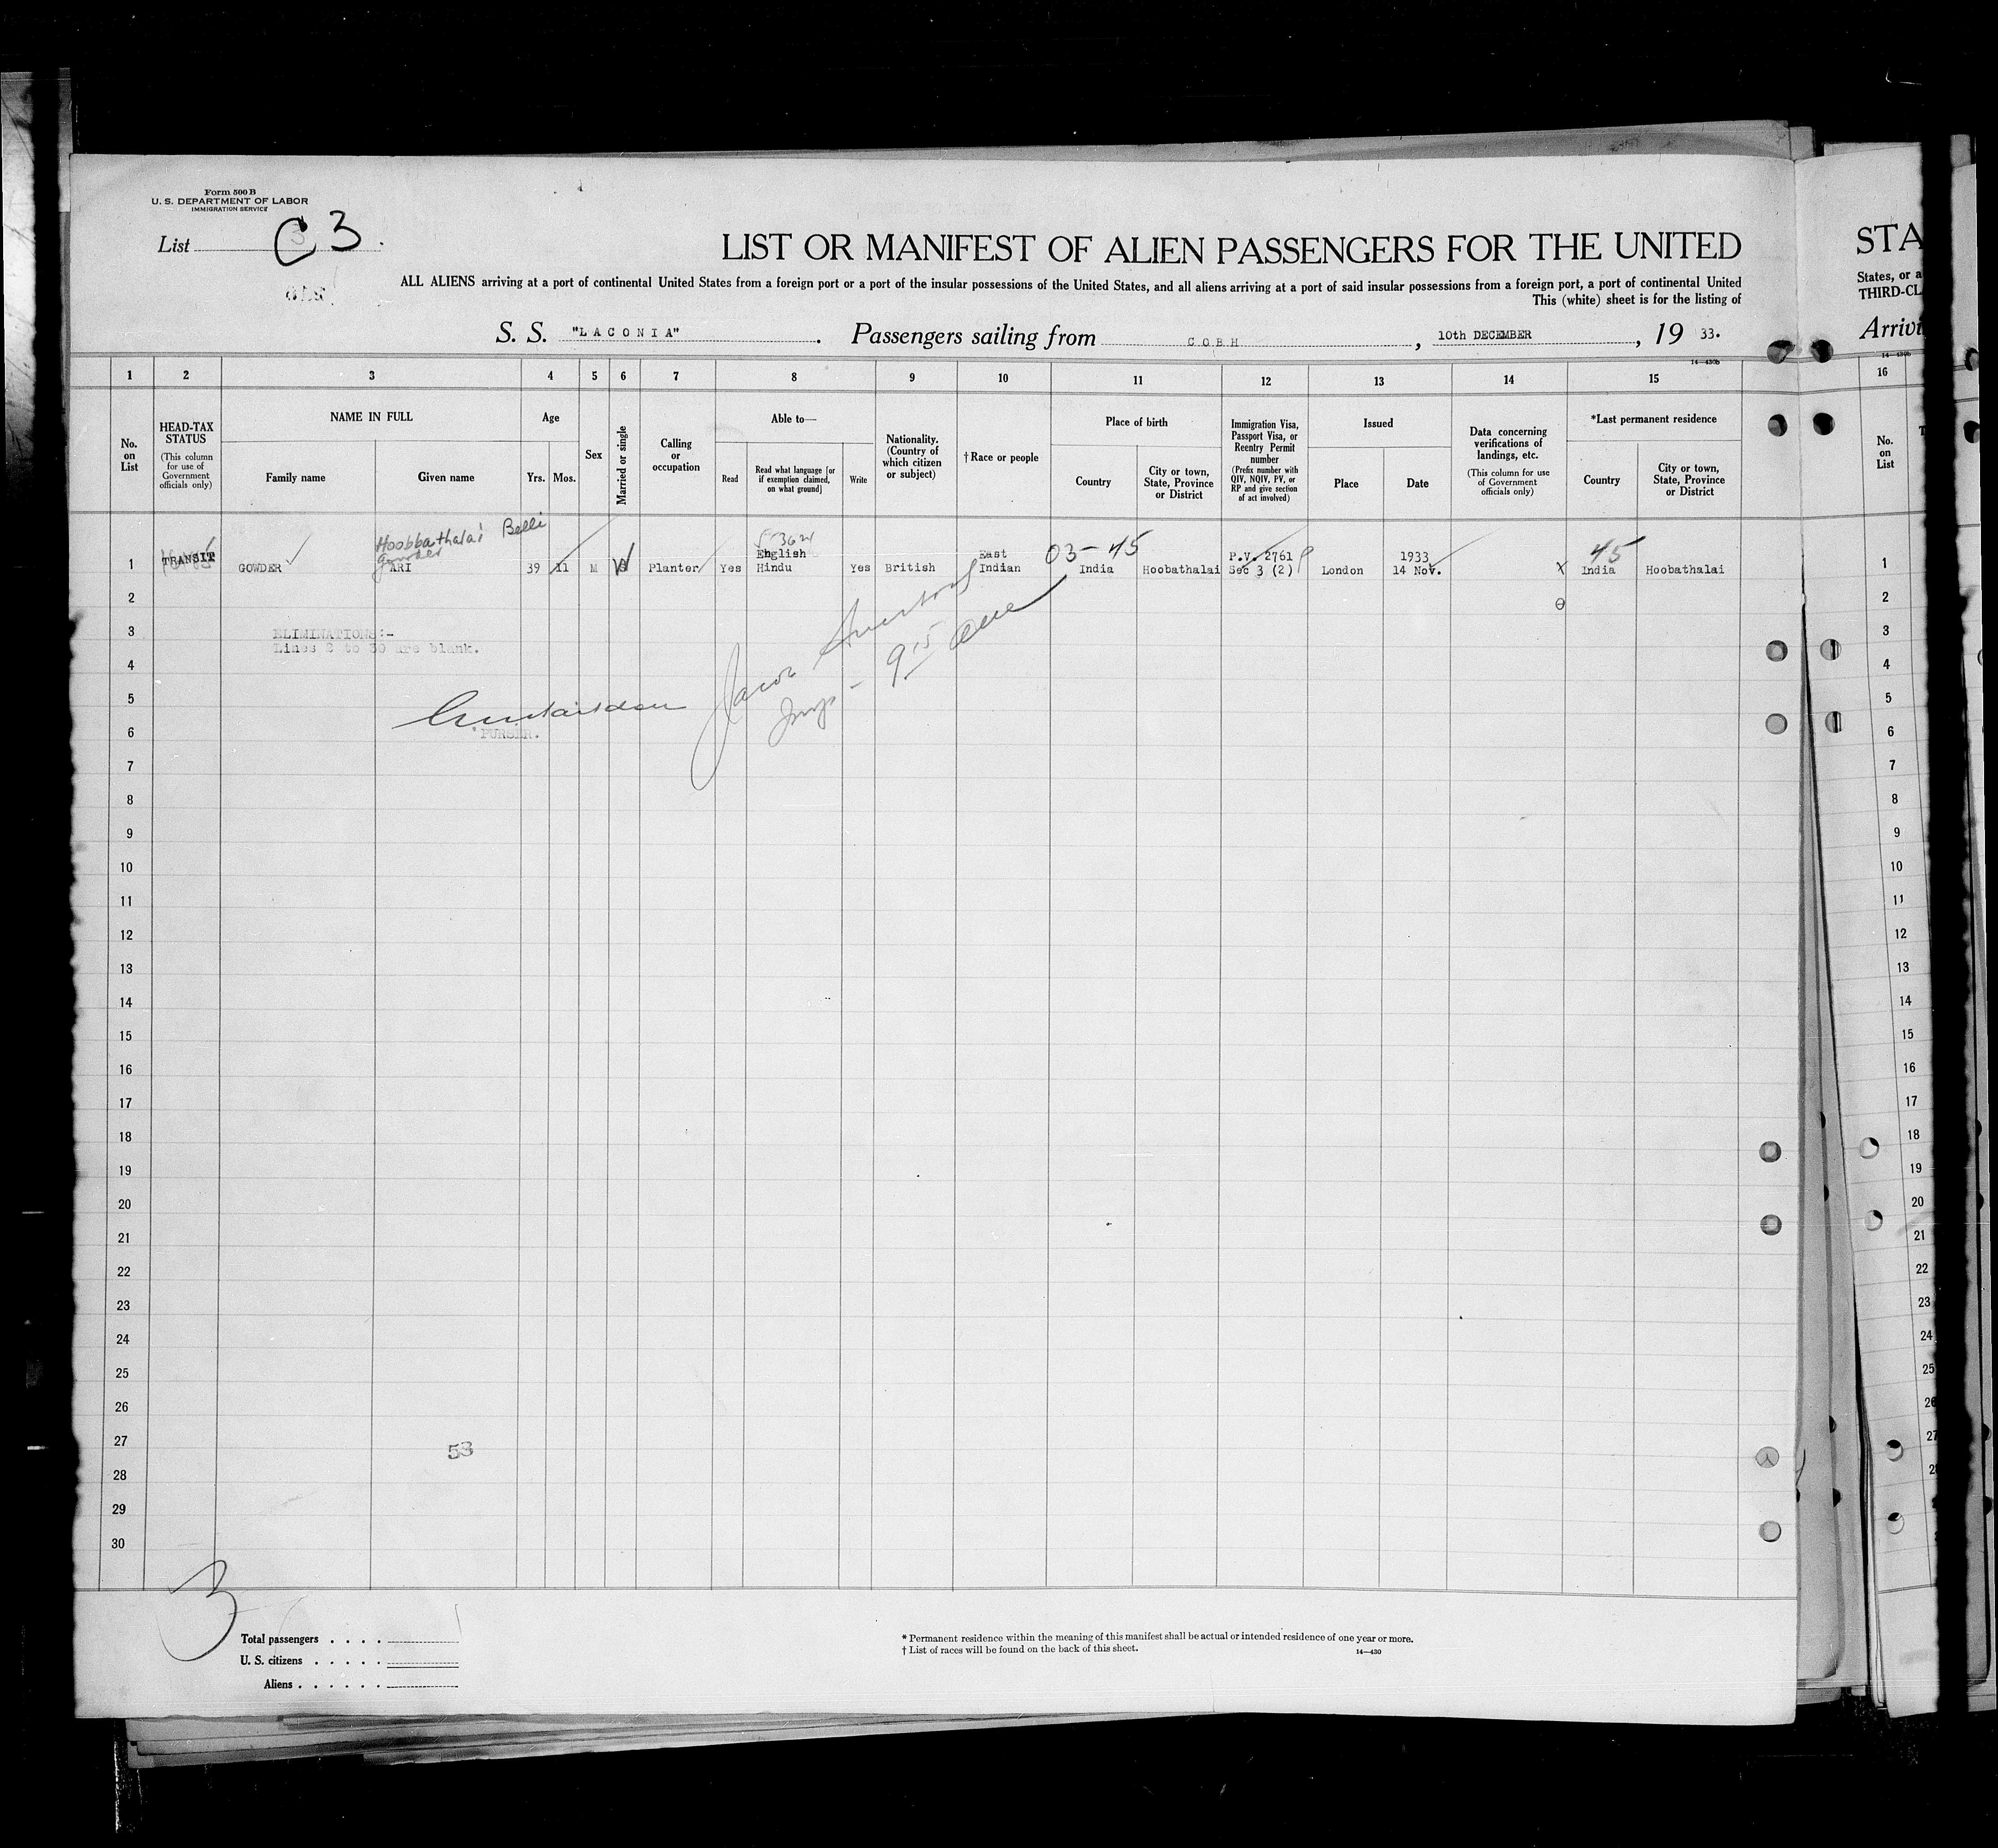 Form 500 B
U. S. DEPARTMENT OF LABOR
IMMIGRATION SERVICE
List C 3.
LIST OR MANIFEST OF ALIEN PASSENGERS FOR THE UNITED
ALL ALIENS arriving at a port of continental United States from a foreign port or a port of the insular possessions of the United States, and all aliens arriving at a port of said insular possessions from a foreign port, a port of continental United
This (white) sheet is for the listing of
S. S. "LACONIA". Passengers sailing from COBH, 10th DECEMBER, 19 33.
14—430b
1 2 3 4 5 6 7 8 9 10 11 12 13 14 15
No. on List
HEAD-TAX STATUS
(This column for use of Government officials only)
NAME IN FULL
Family name
Given name
Age
Yrs.
Mos.
Sex
Married or single
Calling or occupation
Able to—
Read
Read what language [or if exemption claimed, on what ground]
Write
Nationality. (Country of which citizen or subject)
†Race or people
Place of birth
Country
City or town, State, Province or District
Immigration Visa, Passport Visa, or Reentry Permit number
(Prefix number with QIV, NQIV, PV, or RP and give section of act involved)
Issued
Place
Date
Data concerning verifications of landings, etc.
(This column for use of Government officials only)
*Last permanent residence
Country
City or town, State, Province or District
Hoobbathalai Belli
Gowder
TRANSIT
03-45
45
1 GOWDER ARI 39 11 M Planter Yes English Hindu Yes British East Indian India Hoobathalai P.V. 2761 Sec 3 (2) London 1933 14 Nov. x India Hoobathalai
2
3 ELIMINATIONS:-
Lines 2 to 30 are blank.
4
5
6 PURSER.
7
8
9
10
11
12
13
14
15
16
17
18
19
20
21
22
23
24
25
26
27 53
28
29
30
3
Total passengers . . . .
U. S. citizens . . . . .
Aliens . . . . . .
* Permanent residence within the meaning of this manifest shall be actual or intended residence of one year or more.
† List of races will be found on the back of this sheet.
14—430
STA
States, or a
THIRD-CL
Arrivi
14—430b
16
No. on List
1
2
3
4
5
6
7
8
9
10
11
12
13
14
15
16
17
18
19
20
21
22
23
24
25